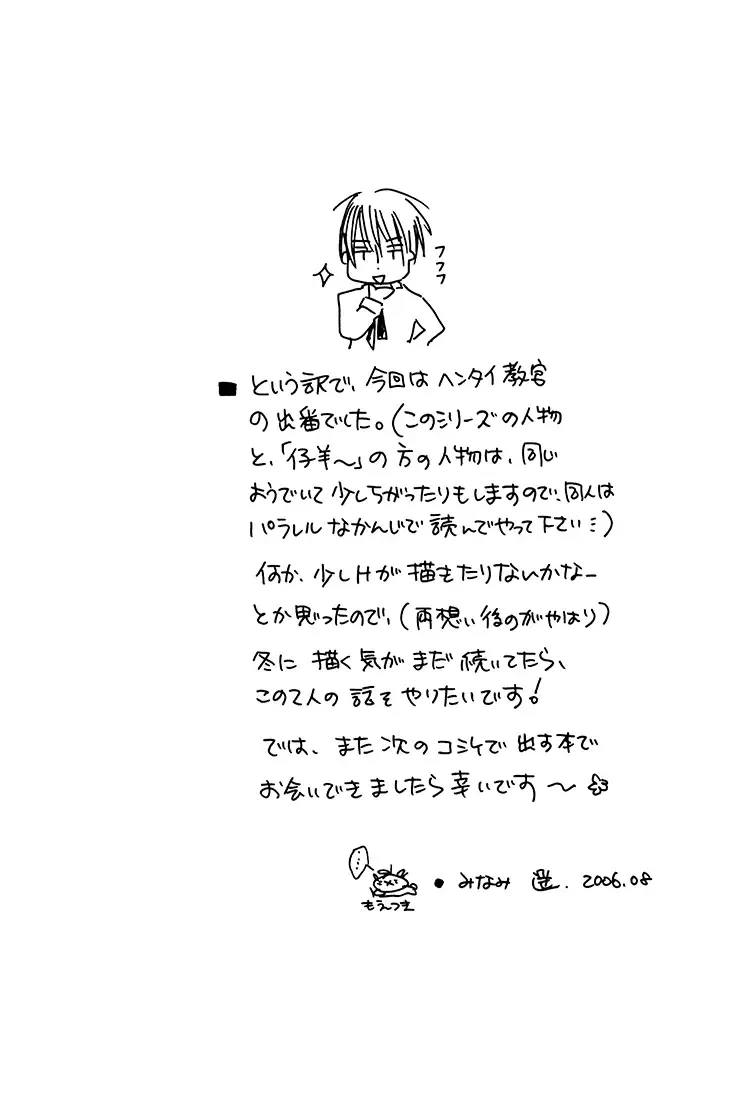 フフフ
■ という訳で、今回はヘンタイ教官
の出番でした。(このシリーズの人物
と、「仔羊〜」の方の人物は、同じ
ようでいて少しちがったりもしますので、同人は
パラレルなかんじで読んでやって下さい…)
何か、少しHが描きたりないかなー
とか思ったので、(両想い後のがやはり)
冬に描く気がまだ続いてたら、
この2人の話をやりたいです!
では、また次のコミケで出す本で
お会いできましたら幸いです〜
……
もえつき
●みなみ 遥. 2006.08